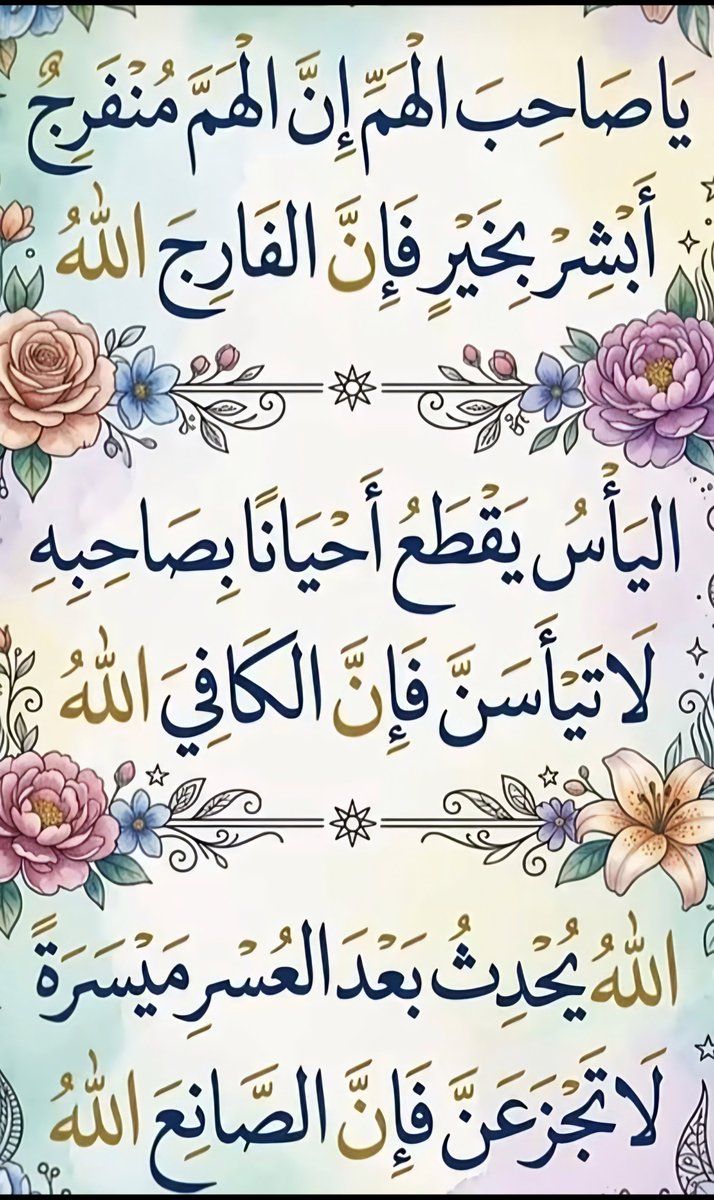 يَا صَاحِبَ الْهَمِّ إِنَّ الْهَمَّ مُنْفَرِجٌ
أَبْشِرْ بِخَيْرٍ فَإِنَّ الفَارِجَ اللهُ
اليَأْسُ يَقْطَعُ أَحْيَانًا بِصَاحِبِهِ
لَا تَيْأَسَنَّ فَإِنَّ الكَافِيَ اللهُ
اللهُ يُحْدِثُ بَعْدَ العُسْرِ مَيْسَرَةً
لَا تَجْزَعَنَّ فَإِنَّ الصَّانِعَ اللهُ